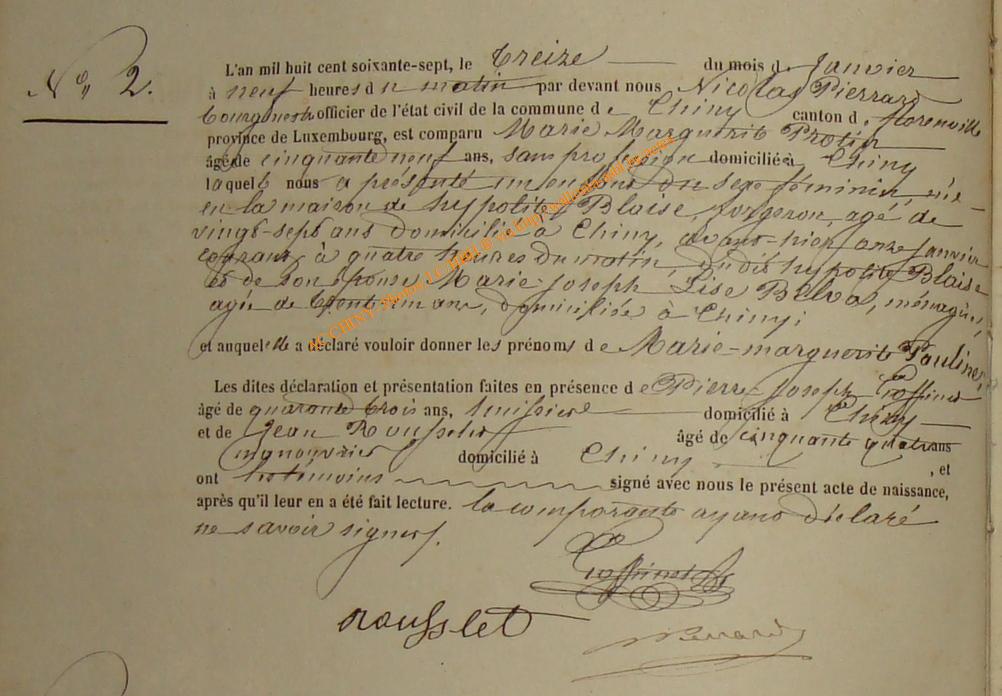 N° 2.
L'an mil huit cent soixante-sept, le treize du mois de Janvier
à neuf heures du matin par devant nous Nicolas Pierrard
bourgmestre officier de l'état civil de la commune de Chiny canton de Florenville
province de Luxembourg, est comparu Marie Marguerite Protin
âgée de cinquante neuf ans, sans profession domiciliée à Chiny
laquelle nous a présenté un enfant du sexe féminin, née
en la maison de hypolite Blaise, forgeron, agé de
vingt-sept ans domicilié à Chiny, avant-hier onze Janvier
courant, à quatre heures du matin, du dit hypolite Blaise
et de son épouse Marie Joseph Lise Belva, ménagère,
agée de trente un ans, domiciliée à Chiny;
et auquel elle a déclaré vouloir donner les prénoms de Marie-marguerite Pauline,
Les dites déclaration et présentation faites en présence de Pierre Joseph Goffinet
âgé de quarante trois ans, huissier domicilié à Chiny
et de Jean Rousselet âgé de cinquante quatre ans
manouvrier domicilié à Chiny, et
ont les témoins signé avec nous le présent acte de naissance,
après qu'il leur en a été fait lecture. la comparante ayant déclaré
ne savoir signer.
Goffinet
rousslet
Pierrard
de CHINY- Photos LC